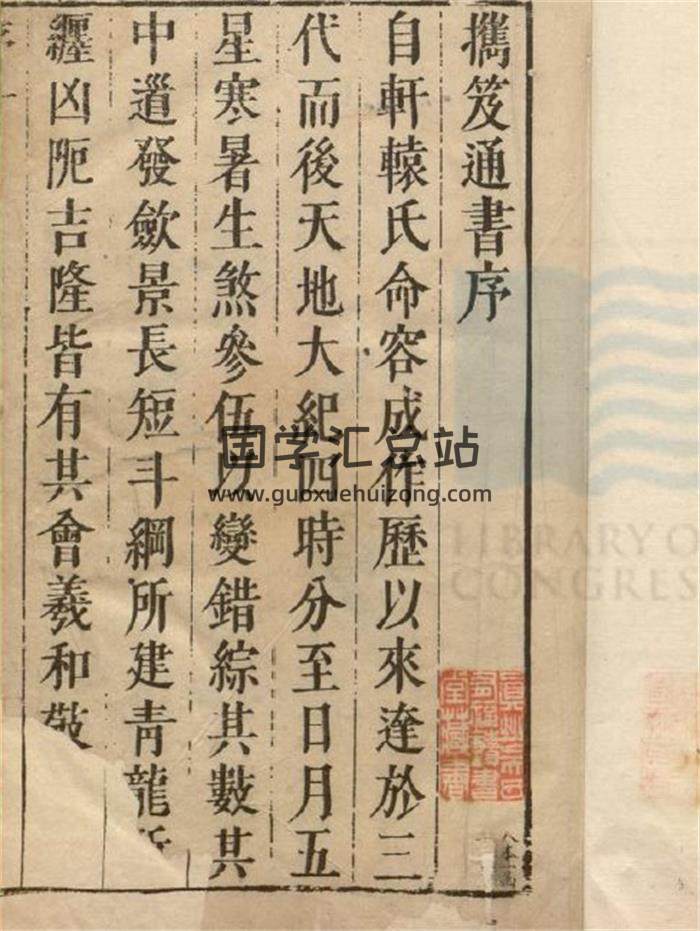 擕笈通書序
自軒轅氏命容成作歷以來逹於三
代而後天地大紀四時分至日月五
星寒暑生煞參伍以變錯綜其數其
中道發歛景長短斗綱所建青龍所
纏凶阨吉隆皆有其會羲和敬
国学汇总站
www.guoxuehuizong.com
LIBRARY O
CONGRES